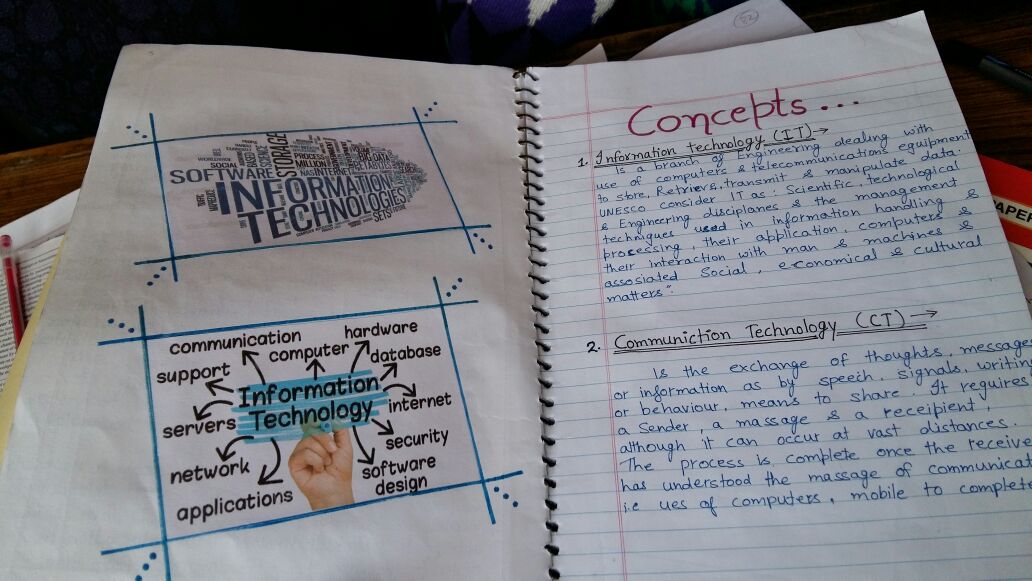 SOFTWARE
STORAGE
SOCIAL
PROCESS
MILLION
BIG DATA
INTERNET
INFORMATION
TECHNOLOGIES
SETS
communication
hardware
computer
database
support
Information
Technology
internet
servers
security
network
software
design
applications
82
Concepts...
1. Information technology (IT)→
Is a branch of Engineering dealing with
use of computers & telecommunications equipment
to store, Retrievs, transmit & manipulate data
UNESCO consider IT as: Scientific, technological
& Engineering disciplanes & the management
techniques used in information handling &
processing, their application, computers &
their interaction with man & machines &
assosiated Social, economical & cultural
matters".
2. Communiction Technology (CT)→
Is the exchange of thoughts, message
or information as by speech, signals, writin
or behaviour, means to share. It requires
a Sender, a massage & a receipient,
although it can occur at vast distances.
The process is complete once the receive
has understood the massage of communicat
i.e ues of computers, mobile to complete
APER